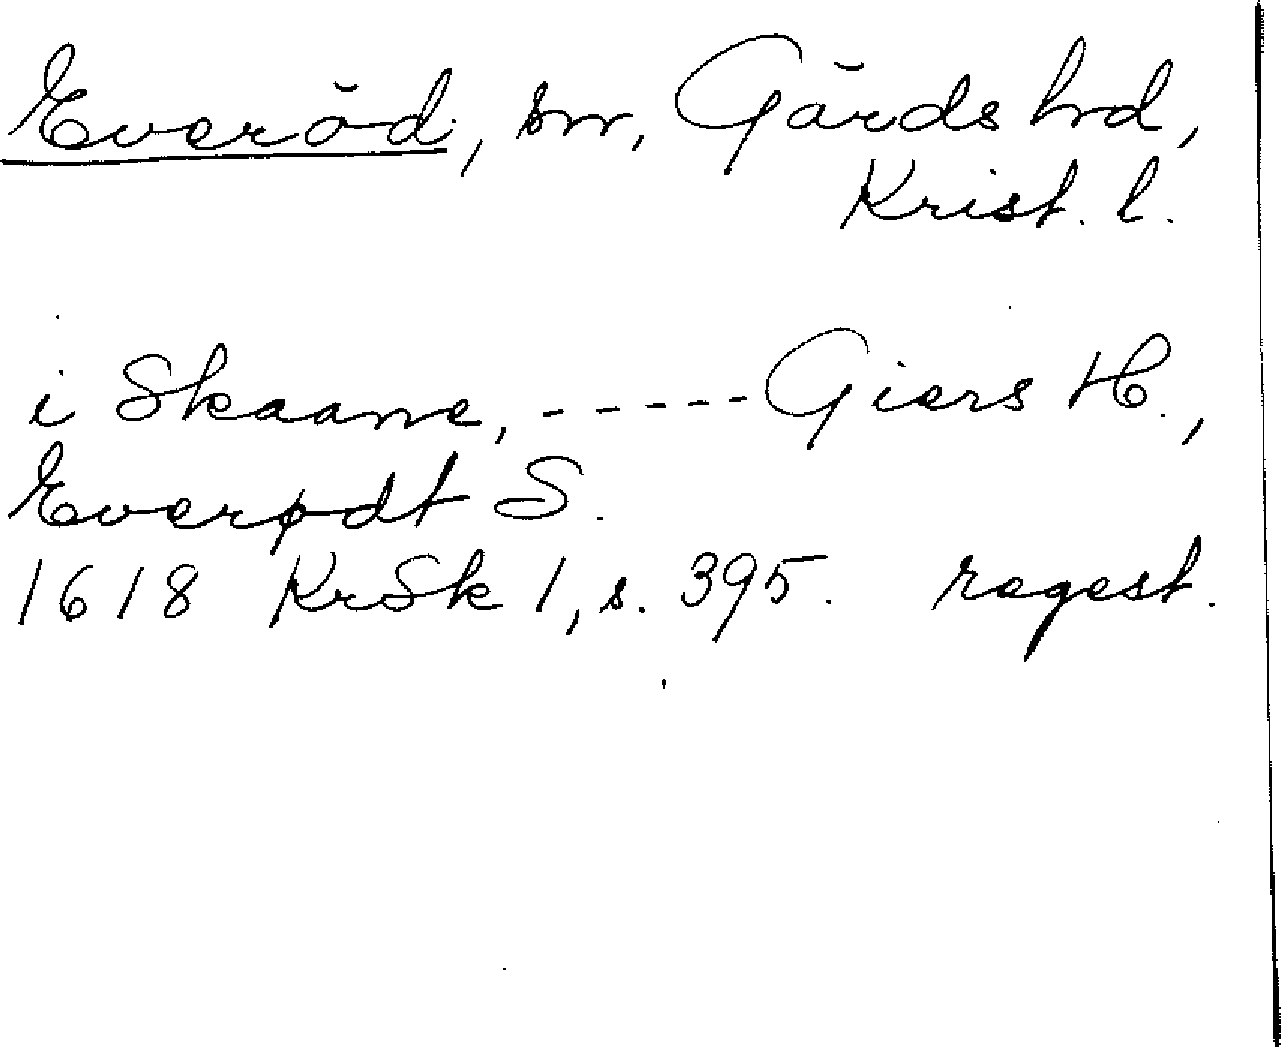 Everöd, sn, Gärds hrd,
Krist. l.
i Skaane, ----- Giers H.,
Everødt S.
1618 KrSk 1, s. 395. regest.